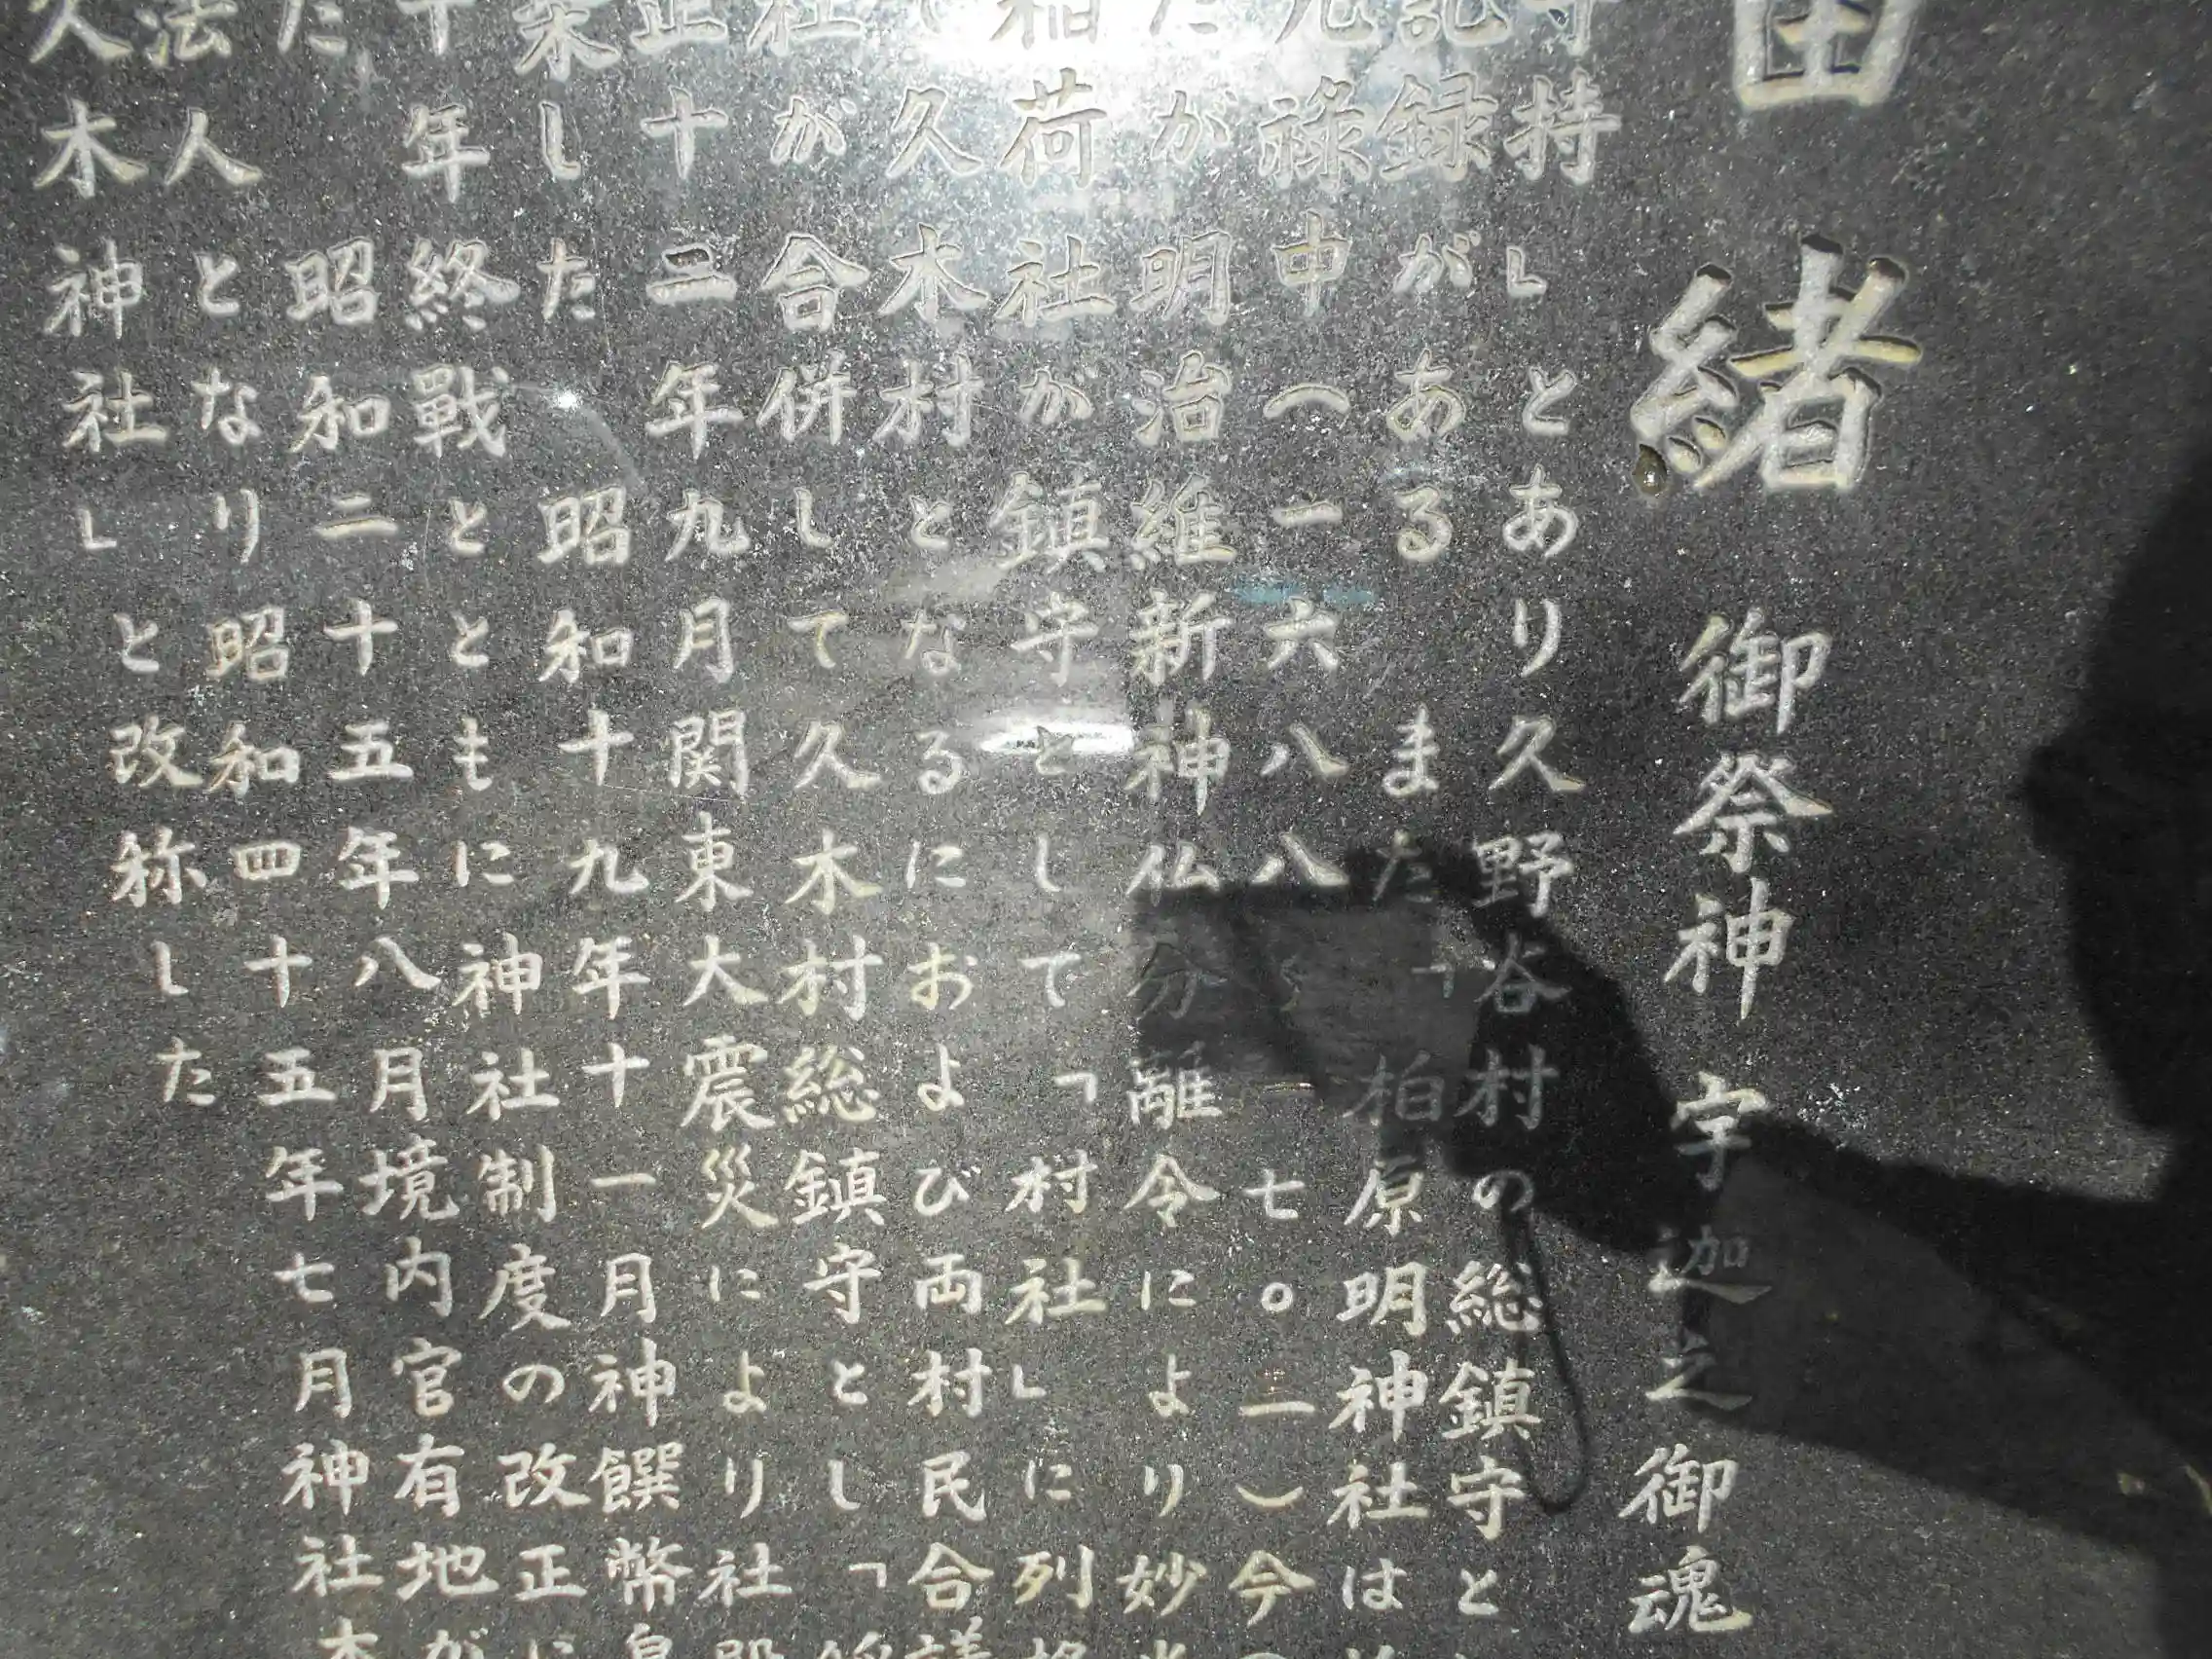 由緒 御祭神 宇迦之御魂
守持」とあり久野谷村の総鎮守と
記録がある また「柏原明神社は
元禄中（一六八八〜一七〇三）今
たが明治維新神仏分離令により妙
稲荷社が鎮守として「村社」に列
久木村となるにおよび両村民合議
社が合併して久木村総鎮守とし「
正十二年九月関東大震災により社殿
来した 昭和十九年十一月神饌幣帛
十年終戰とともに神社制度の改正に
た 昭和二十五年八月境内官有地が
法人となり昭和四十五年七月神社本
久木神社」と改称した